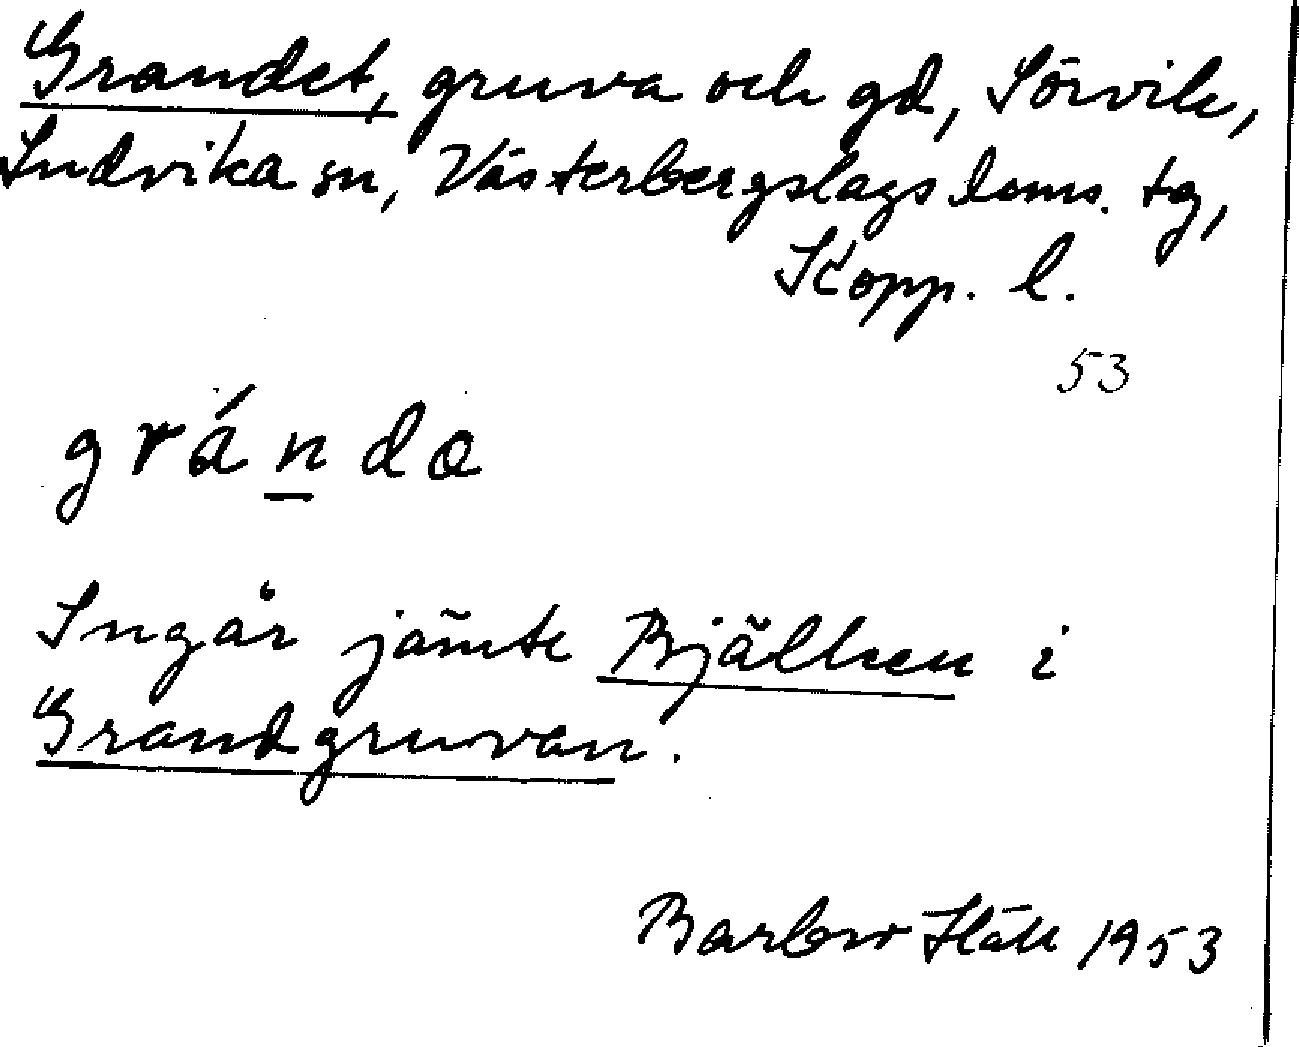 Grandet, gruva och gd, Sörvik,
Ludvika sn, Västerbergslags doms. tg,
Kopp. l.
53
gránda
Ingår jämte Bjälken i
Grandgruvan.
Barbro 1953